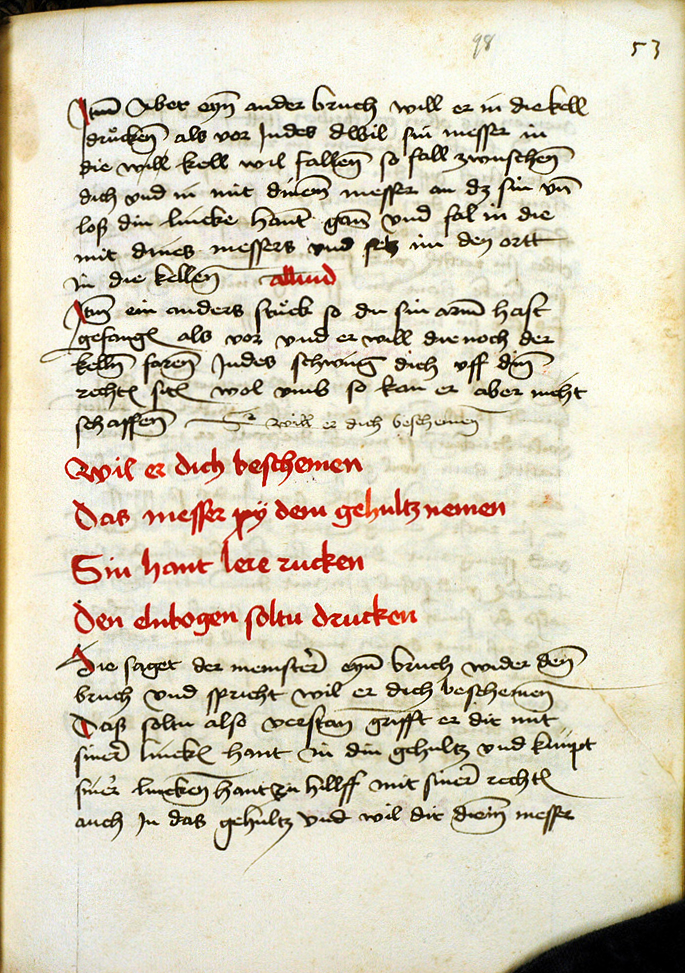 98
53
Itm̄ Aber eyn̄ ander bruch will er in die kell
drůcken̄ als vor Indes dwil sin messer in
die will kell wil fallen̄ so fall zwuschen̄
dich vnd in mit dinem̄ messer an dz sin vn̄
loß din lincke hant gan̄ vnd fal in die
mit dines messers vnd setz im den ortt
in die kellen̄ allud
Itm̄ ein anders stůck so du sin arm̄ hast
gefangē als vor vnd er will die noch der
kelln̄ faren̄ Indes schwing dich vff din̄
rechtē sitē wol vmb so kan er aber nicht
schaffen̄ will er dich beschemen̄
Wil er dich beschemen
Das messer py dem gehultz nemen
Sin hant lere rucken
Den elnbogen soltu drucken
Die saget der meinster̄ eyn̄ bruch wider den̄
bruch vnd spricht wil er dich beschemen̄
Daß soltu also verstan̄ grifft er dir mit
siner̄ linckē hant in din gehultz vnd kumpt
siner̄ lincken̄ hant zu hillff mit siner̄ rechtē
auch In das gehultz vnd wil dir dein̄ messer